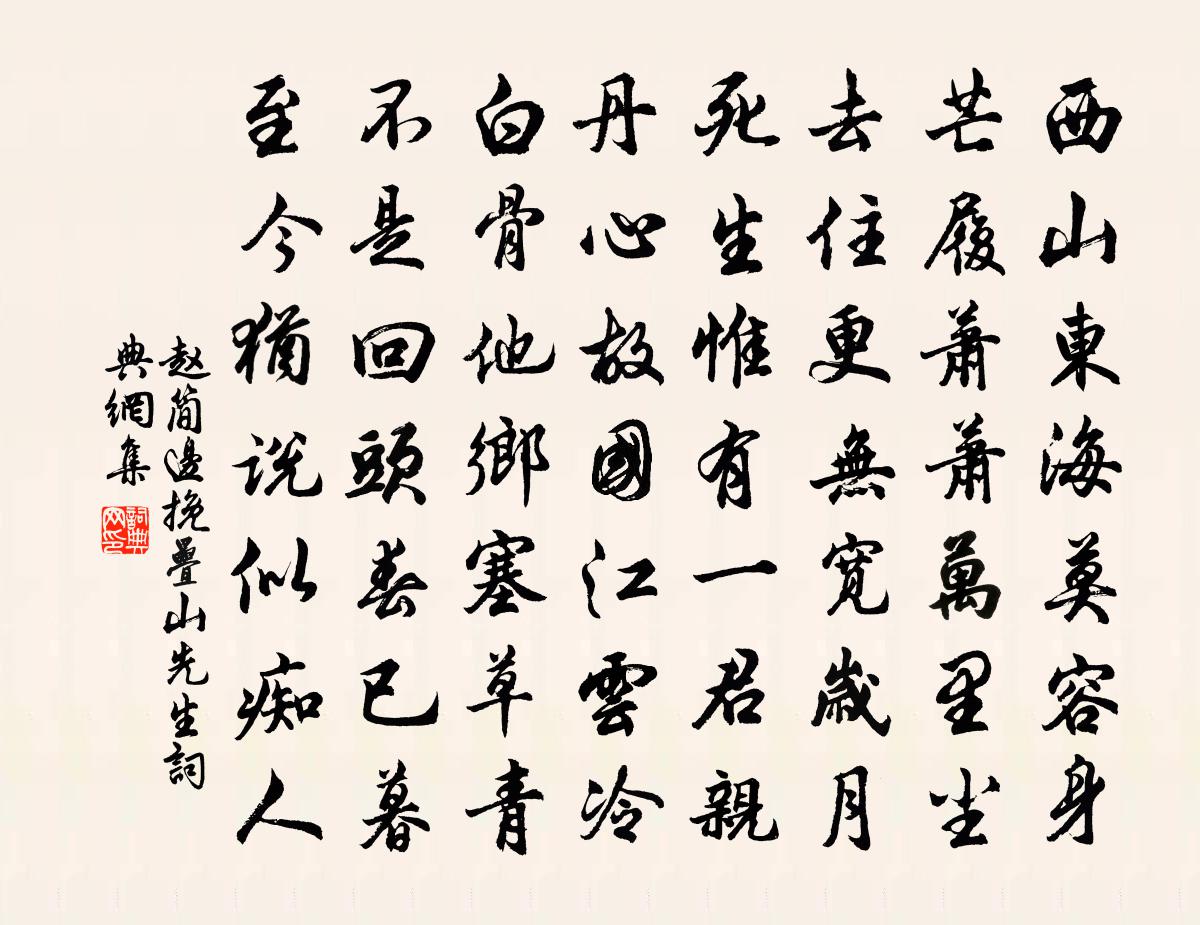 西山東海莫容身
芒履蕭蕭萬里尘
去住更無寛歲月
死生惟有一君親
丹心故國江雲冷
白骨他鄉塞草青
不是回頭春已暮
至今猶説似痴人
赵簡邊挽疊山先生詞
典網集
詞典
网印